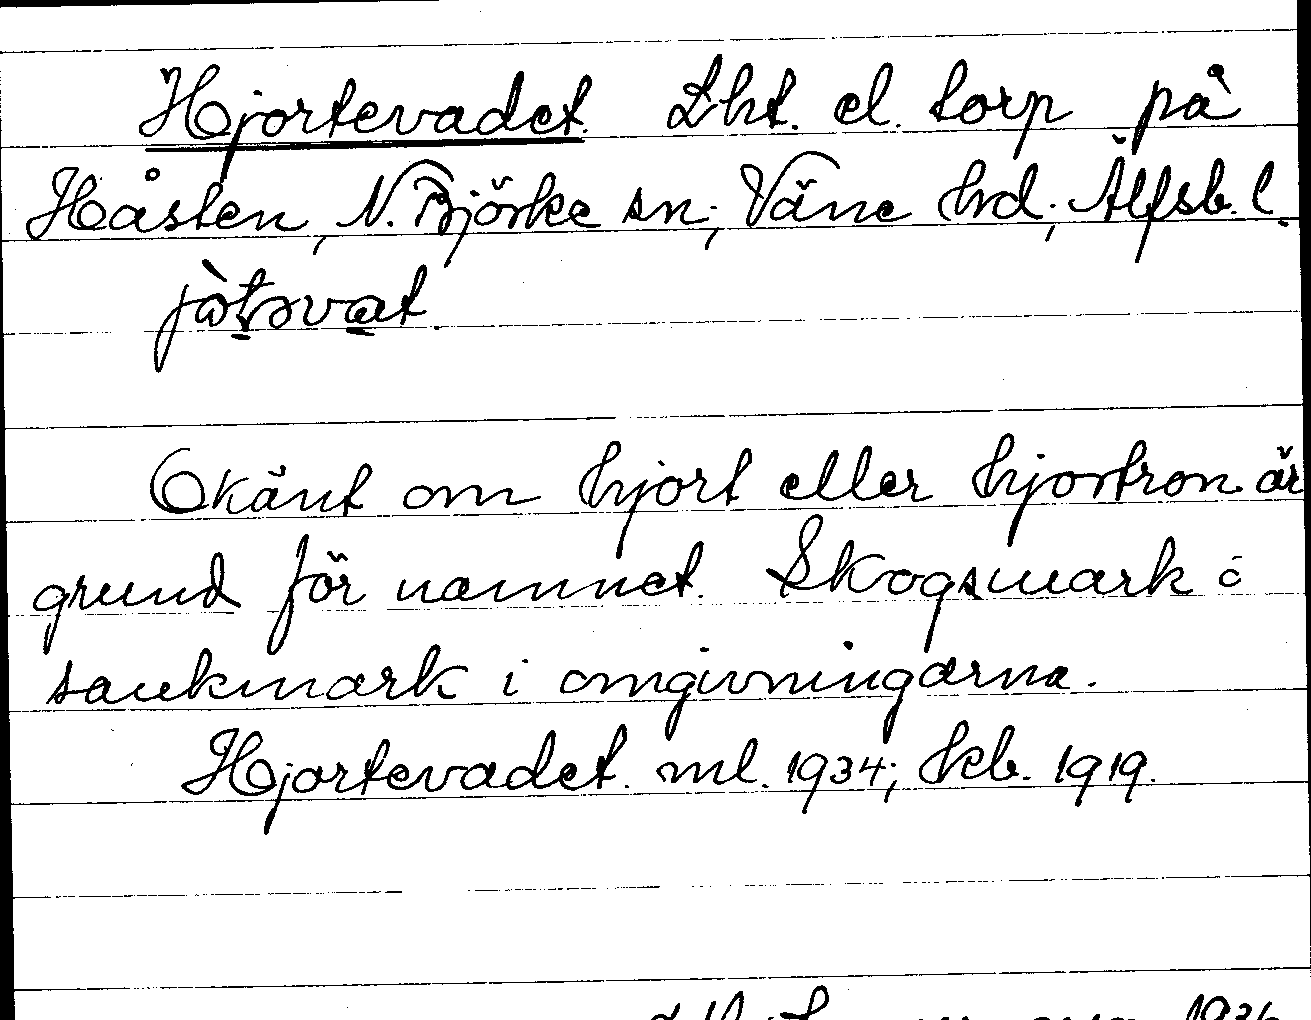 Hjortevadet. Lht. el. torp på
Håsten, N. Björke sn; Väne hd; Älfsb. l.
jòtəvat.
Okänt om hjort eller hjortron är
grund för namnet. Skogsmark o
sankmark i omgivningarna.
Hjortevadet. ml. 1934; Jkb. 1919.
1936